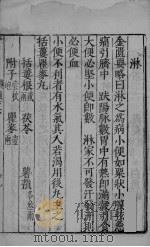 淋
金匱要略曰淋之為病小便如粟狀小腹弦急
痛引臍中　趺陽脉數胃中有熱即消穀引食
大便必堅小便即數　淋家不可發汗發汗則
必便血
小便不利者有水氣其人若渴用後丸主之
括蔞瞿麥丸
括蔞根　茯苓　薯蕷
附子　瞿麥